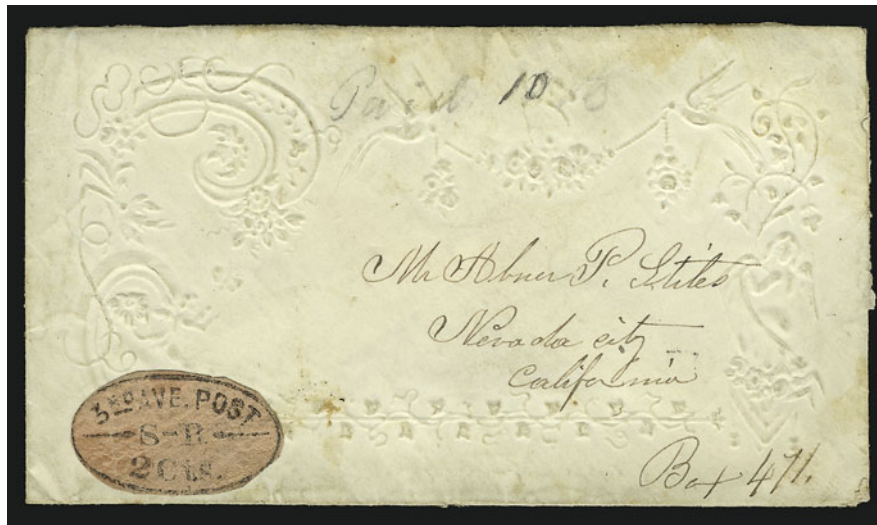 Paid 10
Mr Abner P. Stiles
Nevada city
California
3RD AVE. POST
S-R
2 Cts.
Box 471.